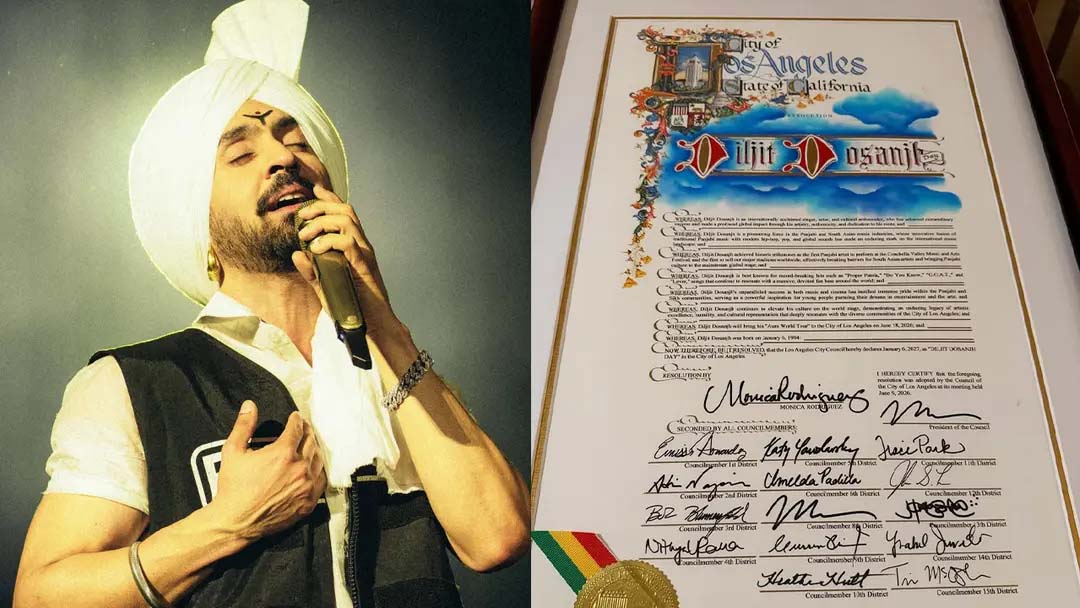 City of
Los Angeles
State of California
RESOLUTION
Diljit Dosanjh
Day
WHEREAS, Diljit Dosanjh is an internationally acclaimed singer, actor, and cultural ambassador, who has achieved extraordinary
success and made a profound global impact through his artistry, authenticity, and dedication to his roots; and
WHEREAS, Diljit Dosanjh is a pioneering force in the Punjabi and South Asian music industries, whose innovative fusion of
traditional Punjabi music with modern hip-hop, pop, and global sounds has made an enduring mark on the international music
landscape; and
WHEREAS, Diljit Dosanjh achieved historic milestones as the first Punjabi artist to perform at the Coachella Valley Music and Arts
Festival and the first to sell out major stadiums worldwide, effectively breaking barriers for South Asian artists and bringing Punjabi
culture to the mainstream global stage; and
WHEREAS, Diljit Dosanjh is best known for record-breaking hits such as "Proper Patola," "Do You Know," "G.O.A.T.," and
"Lover," songs that continue to resonate with a massive, devoted fan base around the world; and
WHEREAS, Diljit Dosanjh's unparalleled success in both music and cinema has instilled immense pride within the Punjabi and
Sikh communities, serving as a powerful inspiration for young people pursuing their dreams in entertainment and the arts; and
WHEREAS, Diljit Dosanjh continues to elevate his culture on the world stage, demonstrating an enduring legacy of artistic
excellence, humility, and cultural representation that deeply resonates with the diverse communities of the City of Los Angeles; and
WHEREAS, Diljit Dosanjh will bring his "Aura World Tour" to the City of Los Angeles on June 18, 2026; and
WHEREAS, Diljit Dosanjh was born on January 6, 1994;
NOW THEREFORE, BE IT RESOLVED, that the Los Angeles City Council hereby declares January 6, 2027, as "DILJIT DOSANJH
DAY" in the City of Los Angeles.
RESOLUTION BY
I HEREBY CERTIFY that the foregoing
resolution was adopted by the Council of
the City of Los Angeles at its meeting held
June 9, 2026.
Monica Rodriguez
MONICA RODRIGUEZ
President of the Council
SECONDED BY ALL COUNCILMEMBERS
Katy Yaroslavsky
Councilmember 1st District
Councilmember 5th District
Councilmember 11th District
Imelda Padilla
Councilmember 2nd District
Councilmember 6th District
Councilmember 12th District
Councilmember 3rd District
Councilmember 8th District
Councilmember 13th District
Nithya Raman
Councilmember 4th District
Councilmember 9th District
Councilmember 14th District
Heather Hutt
Councilmember 10th District
Councilmember 15th District